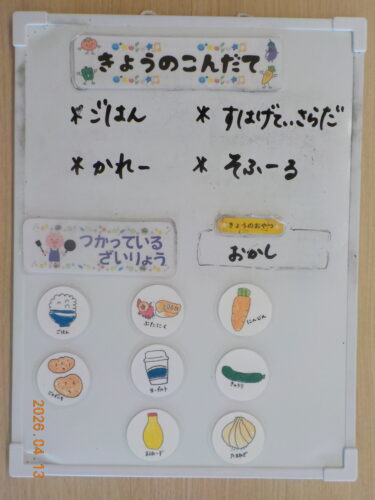 きょうのこんだて
* ごはん
* すぱげてぃさらだ
* かれー
* そふーる
つかっている
ざいりょう
きょうのおやつ
おかし
ごはん
ぶたにく
にんじん
じゃがいも
ヨーグルト
きゅうり
まよねーず
たまねぎ
2026.04.13